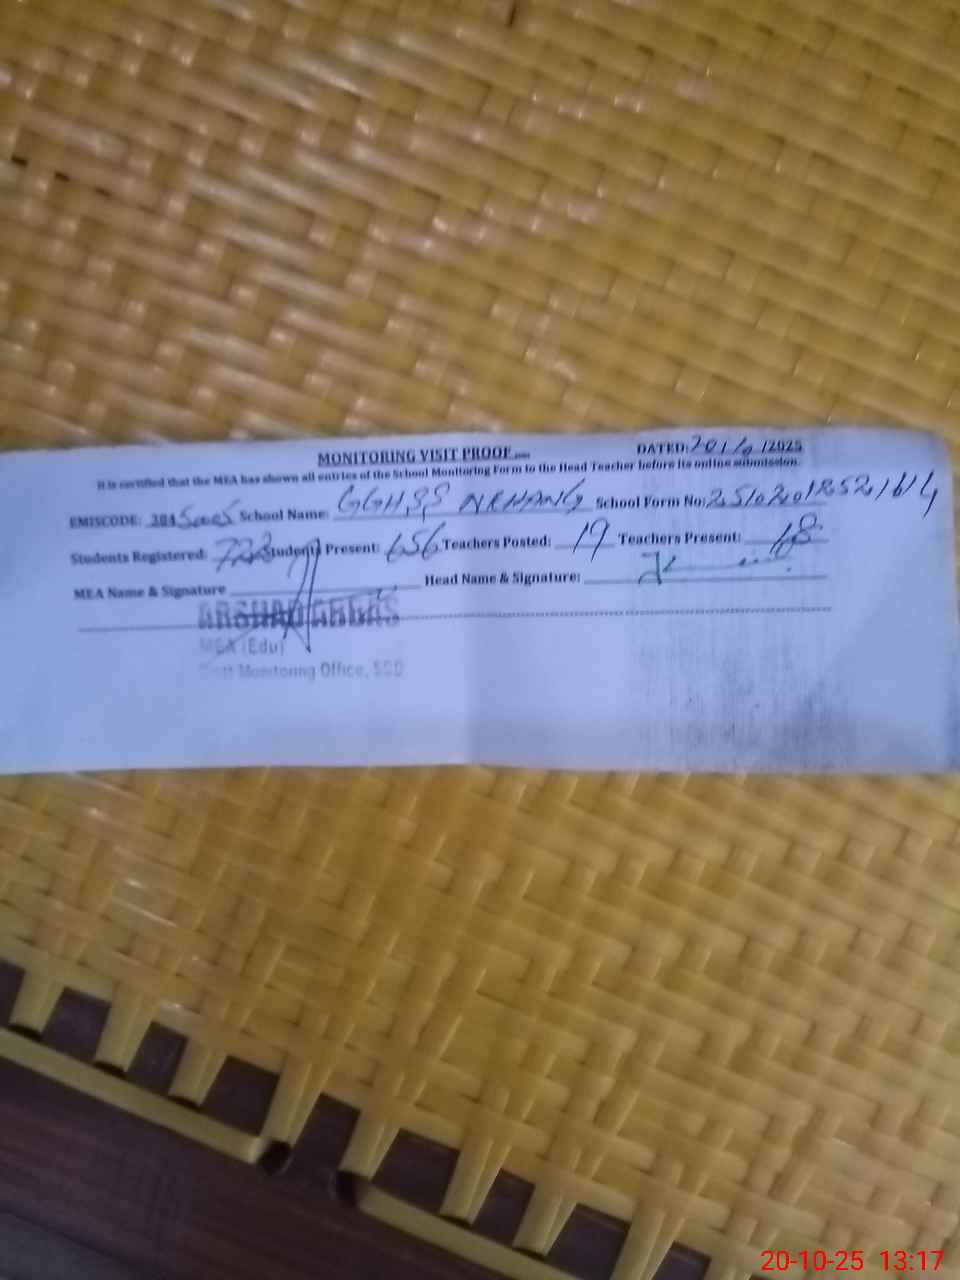 MONITORING VISIT PROOF
DATED: 20/10/2025
It is certified that the MEA has shown all entries of the School Monitoring Form to the Head Teacher before its online submission.
EMISCODE: School Name: GGHSS School Form No:
Students Registered: 723 Students Present: 656 Teachers Posted: 19 Teachers Present: 18
MEA Name & Signature Head Name & Signature:
ARSHAD ABBAS
MEA (Edu)
Monitoring Office,
20-10-25 13:17